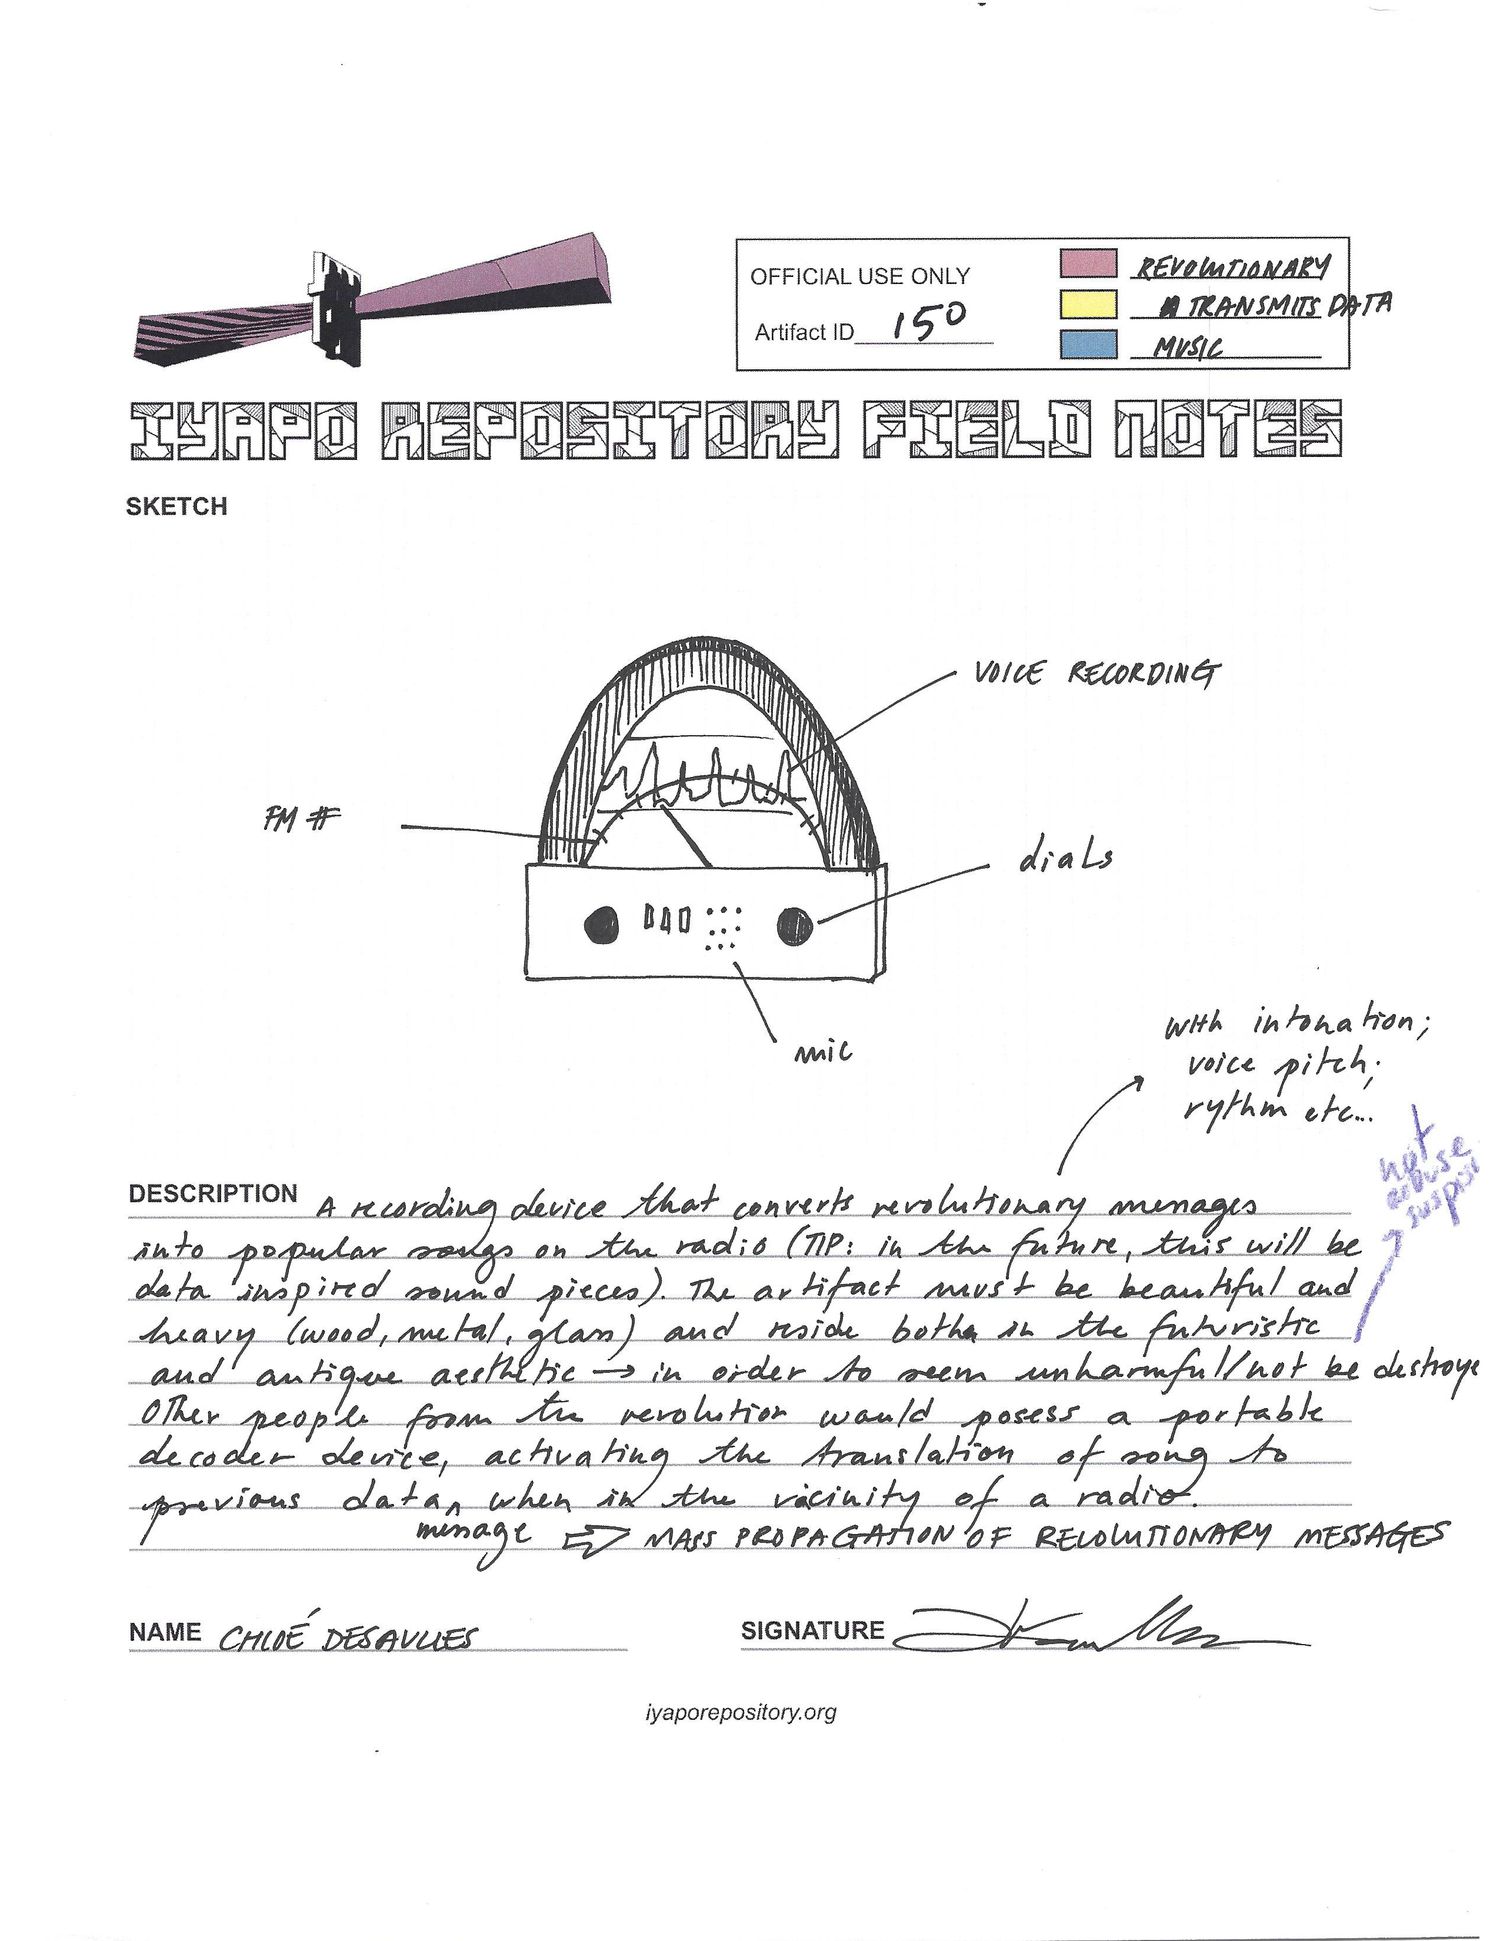 OFFICIAL USE ONLY
Artifact ID 150
REVOLUTIONARY
TRANSMITS DATA
MUSIC
IYAPO REPOSITORY FIELD NOTES
SKETCH
VOICE RECORDING
FM #
dials
mic
with intonation;
voice pitch;
rythm etc...
not
arouse
suspici
DESCRIPTION A recording device that converts revolutionary messages
into popular songs on the radio (TIP: in the future, this will be
data inspired sound pieces). The artifact must be beautiful and
heavy (wood, metal, glass) and reside both in the futuristic
and antique aesthetic → in order to seem unharmful/not be destroye
Other people from the revolution would posess a portable
decoder device, activating the translation of song to
previous data ^ when in the vicinity of a radio.
message ⇨ MASS PROPAGATION OF REVOLUTIONARY MESSAGES
NAME CHLOÉ DESAULIES
SIGNATURE
iyaporepository.org